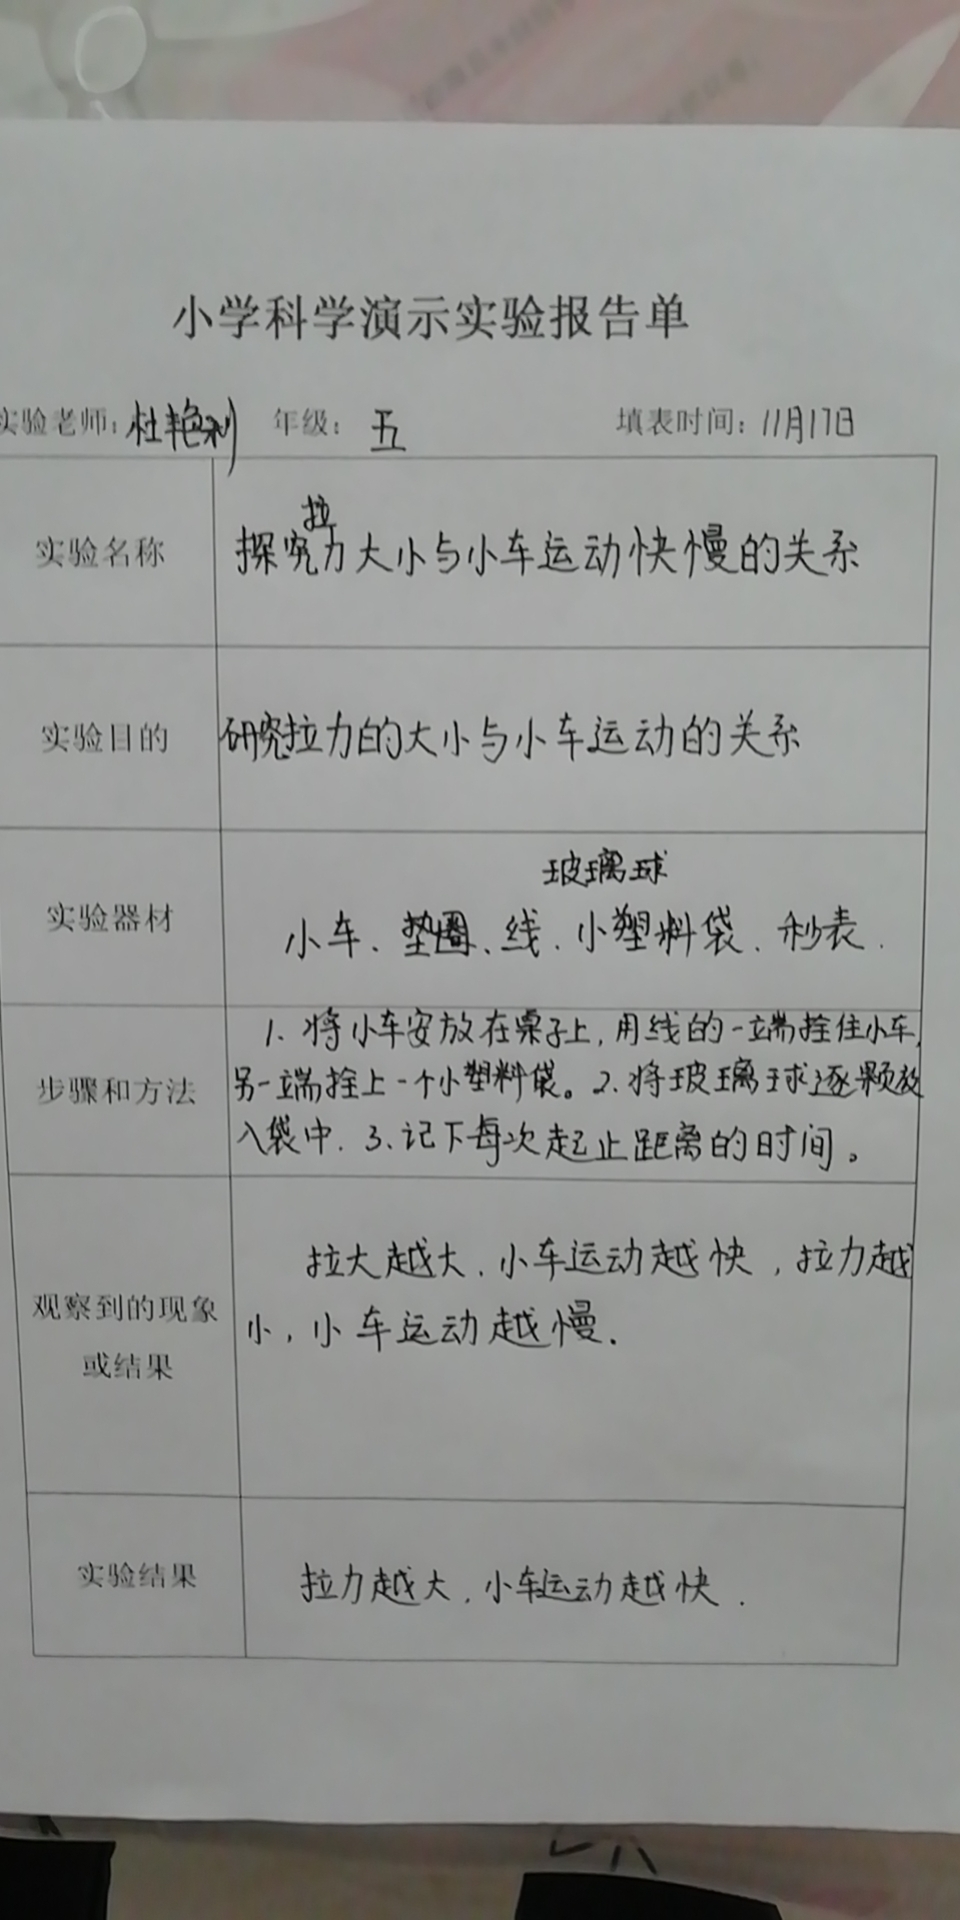 小学科学演示实验报告单
实验老师：杜艳利 年级：五 填表时间：11月17日
实验名称 探究拉力大小与小车运动快慢的关系
实验目的 研究拉力的大小与小车运动的关系
玻璃球
实验器材 小车、垫圈、线、小塑料袋、秒表.
1、将小车安放在桌子上,用线的一端拴住小车,
步骤和方法 另一端拴上一个小塑料袋。2.将玻璃球逐颗放
入袋中.3、记下每次起止距离的时间。
拉大越大、小车运动越快,拉力越
观察到的现象 小,小车运动越慢.
或结果
实验结果 拉力越大,小车运动越快.